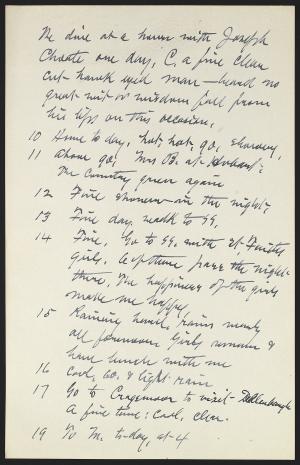 We dine at a house with Joseph
Choate one day, C. a fine clear
cut hawk eyed man — heard no
great wit or wisdom fall from
his lips on this occasion.
10 Home to day, hot, hot, 90, showery,
11 Above 90, Mrs B. at Hobart:
The country green again
12 Fine showers in the night,
13 Fine day. walk to SS,
14 Fine, Go to SS. with
girls, 6 of them, pass the night
there, The happiness of the girls
make me happy,
15 Raining hard, rains nearly
all forenoon. Girls remain &
have lunch with me
16 Cool, 60. & light rain
17 Go to Cragsmoor to visit Dellenbaugh
A fine time: Cool, clear.
19 To M. to-day, at 4